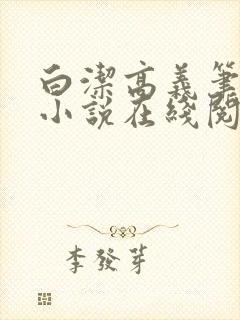 白潔高義筆
小說在綫閱
李發芽